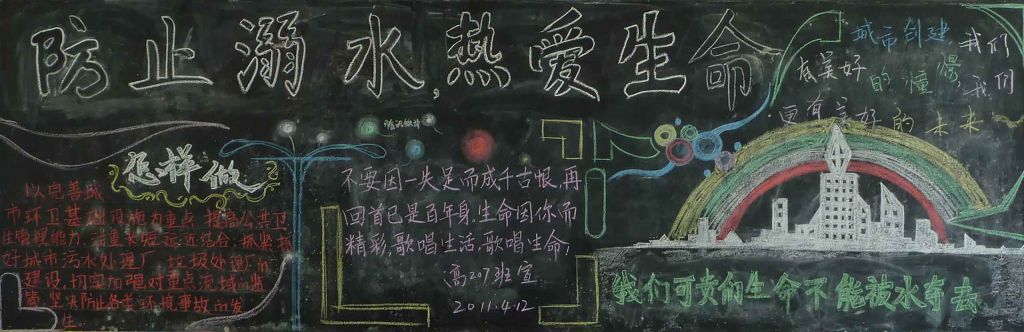 防止溺水,热爱生命
城市创建
我们
有美好
的憧憬,我们
更有美好的未来
怎样做
以完善城
市环卫基础设施为重点,提高公共卫
生管理能力,注重长短远近结合,抓紧抓
好城市污水处理厂 垃圾处理厂的
建设,切实加强对重点流域的监
管,坚决防止各类环境事故的发
生。
不要因一失足而成千古恨,再
回首已是百年身.生命因你而
精彩,歌唱生活,歌唱生命!
高207班宣
2011.4.12
我们可贵的生命不能被水夺去